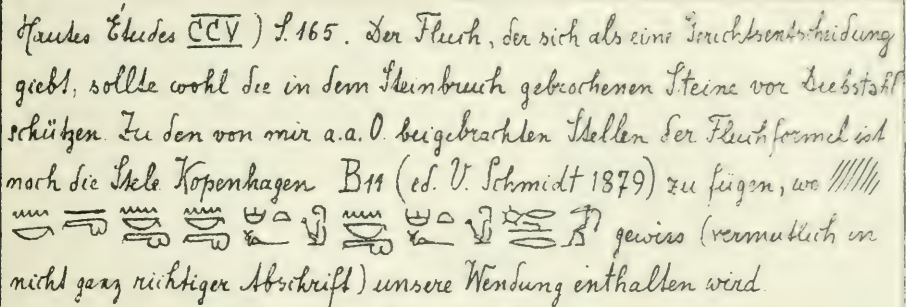 Hautes Études CCV) S. 165. Der Fluch, der sich als eine Gerichtsentscheidung
giebt, sollte wohl die in dem Steinbruch gebrochenen Steine vor Diebstahl
schützen. Zu den von mir a.a.O. beigebrachten Stellen der Fluchformel ist
noch die Stele Kopenhagen B11 (ed. V. Schmidt 1879) zu fügen, wo
gewiss (vermutlich in
nicht ganz richtiger Abschrift) unsere Wendung enthalten wird.